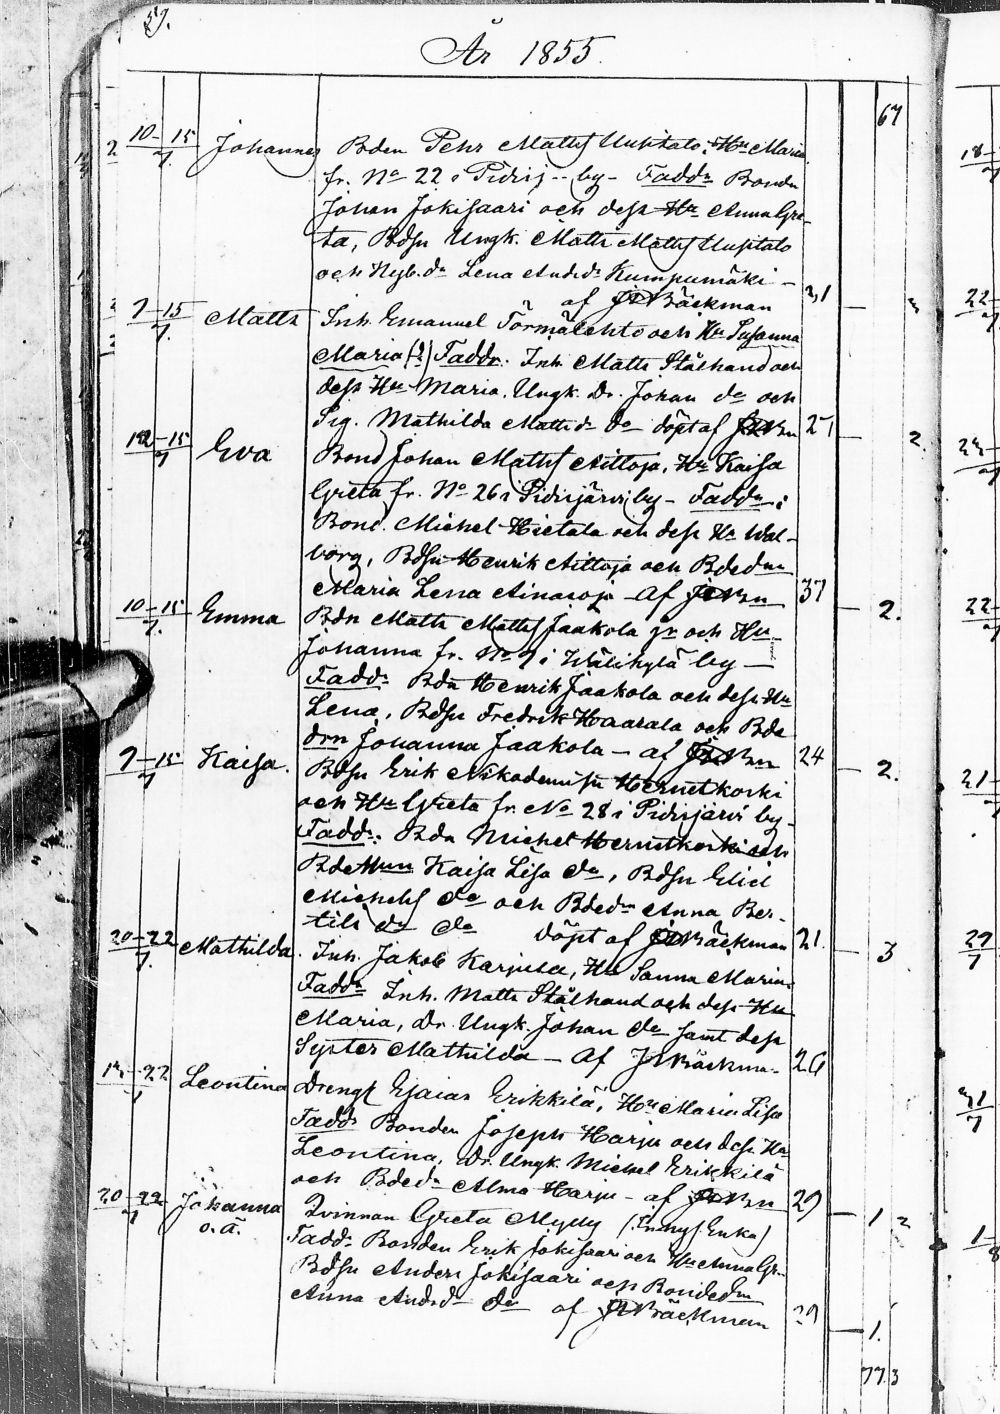 57.
År 1855.
67
10–15/7. Johannes Bden Pehr Matts Uusitalo, Hu Maria
fr. No 22 i Pidisj-- by – Faddr Bonden
Johan Jokisaari och dess Hu Anna Gre-
ta, Bdsn Ungk. Matts Matts Uusitalo
och Nyb.dr Lena Andsdr Kumpumäki –
af Bäckman 31
7–15/7. Matts Inh. Emanuel Törmälehto och Hu Susanna
Maria Faddr. Inh. Matts Stålhand och
dess Hu Maria. Ungk. Dr. Johan do och
Pig. Mathilda Mattsdr do döpt af
15/7 Eva Bond Johan Matts Aittoja, Hu Kaisa
Greta fr. No 26 i Pidisjärvi by – Faddr:
Bond. Michel Hietala och dess Hu Wal-
borg, Bdsn Henrik Aittoja och Bdedn
Maria Lena Ainasoja – af 37
10–15/7. Emma Bdn Matts Matts Jaakola jr och Hu
Johanna fr. No 9 i Wälikylä by –
Faddr Bdn Henrik Jaakola och dess Hu
Lena, Bdsn Fredrik Haarala och Bde
drn Johanna Jaakola – af 24
2.
7–15/7 Kaisa. Bdsn Erik Nikodemuss Hernetkoski
och Hu Greta fr. No 28 i Pidisjärvi by –
Faddr. Bdn Michel Hernetkoski och
Bde Hun Kaisa Lisa do, Bdsn Elid
Michels do och Bdedr Anna Ber-
tils dr do döpt af Bäckman 21.
2.
20–22/7. Mathilda. Inh. Jakob Karjula, Hu Sanna Maria.
Faddr Inh. Matts Stålhand och dess Hu
Maria, Dr. Ungk. Johan do samt dess
Syster Mathilda – af Bäckman 26
3
22/7 Leontina Drengs Esaias Erikkilä, Hu Maria Lisa
Faddr Bonden Joseph Harju och dess Hu
Leontina, Dr. Ungk. Michel Erikkilä
och Bdedr Alma Harju – af 29
20–22/7 Johanna
o.ä. Qvinnan Greta Mylly (Enka)
Faddr Bonden Erik Jokisaari och Hu Anna Gr.
Bdsn Anders Jokisaari och Bondedn
Anna Andsdr do af Bäckman 29
1
2
1.
77.3